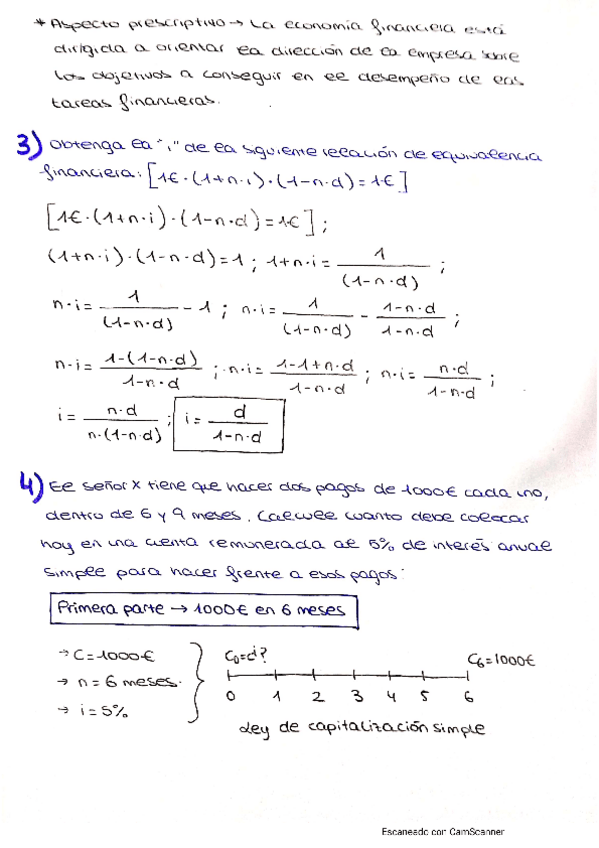 * Aspecto prescriptivo → La economía financiera está
dirigida a orientar la dirección de la empresa sobre
los objetivos a conseguir en el desempeño de las
tareas financieras.
3) Obtenga la "i" de la siguiente relación de equivalencia
financiera: [1€·(1+n·i)·(1-n·d)=1€]
[1€·(1+n·i)·(1-n·d)=1€];
(1+n·i)·(1-n·d)=1; 1+n·i= 1/(1-n·d);
n·i= 1/(1-n·d) - 1; n·i= 1/(1-n·d) - 1-n·d/1-n·d;
n·i= 1-(1-n·d)/1-n·d; n·i= 1-1+n·d/1-n·d; n·i= n·d/1-n·d;
i= n·d/n·(1-n·d); i= d/1-n·d
4) El señor X tiene que hacer dos pagos de 1000€ cada uno,
dentro de 6 y 9 meses. Calcule cuanto debe colocar
hoy en una cuenta remunerada al 5% de interés anual
simple para hacer frente a esos pagos:
Primera parte → 1000€ en 6 meses
→ C=1000€
→ n=6 meses.
→ i=5%
C₀=¿? C₆=1000€
0 1 2 3 4 5 6
Ley de capitalización simple
Escaneado con CamScanner